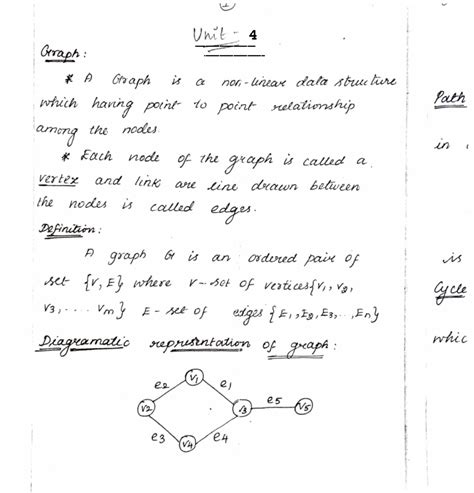 1
Unit - 4
Graph:
* A Graph is a non-linear data structure
which having point to point relationship
among the nodes
* Each node of the graph is called a
vertex and link are line drawn between
the nodes is called edges.
Definition:
A graph G is an ordered pair of
set {V, E} where V-set of vertices {V1, V2,
V3, .... Vm} E - set of edges {E1, E2, E3, .., En}
Diagramatic representation of graph:
e2 V1 e1
V2 V3 e5 V5
e3 V4 e4
Path
in
is
Cycle
whic